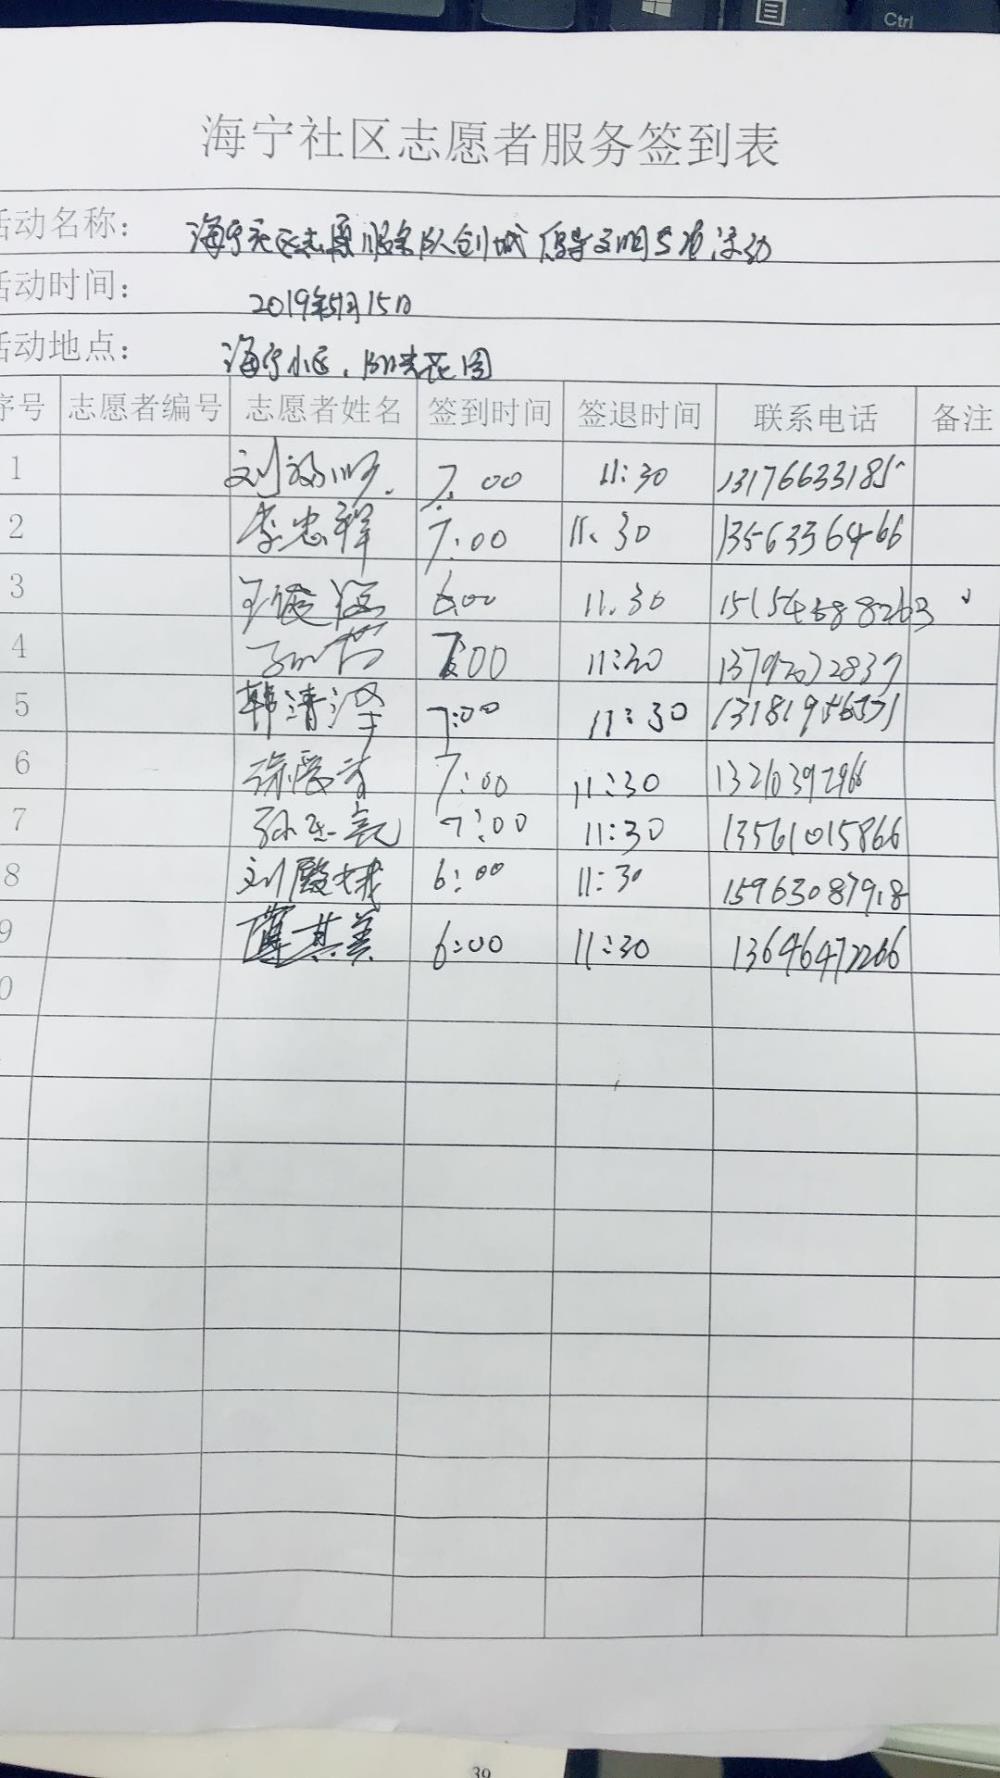 Ctrl
海宁社区志愿者服务签到表
活动名称： 海宁社区志愿服务队创城 倡导文明专项活动
活动时间： 2019年5月15日
活动地点： 海宁小区、阳光花园
序号 志愿者编号 志愿者姓名 签到时间 签退时间 联系电话 备注
1 7:00 11:30 1317663318
2 李忠祥 7:00 11:30 13563356466
3 6:00 11:30 15154588263
4 7:00 11:30
5 韩清泽 7:00 11:30
6 徐爱 7:00 11:30 13210392966
7 7:00 11:30 13561015866
8 刘殿 6:00 11:30 15963087918
9 薄其美 6:00 11:30 13646472266
0
39